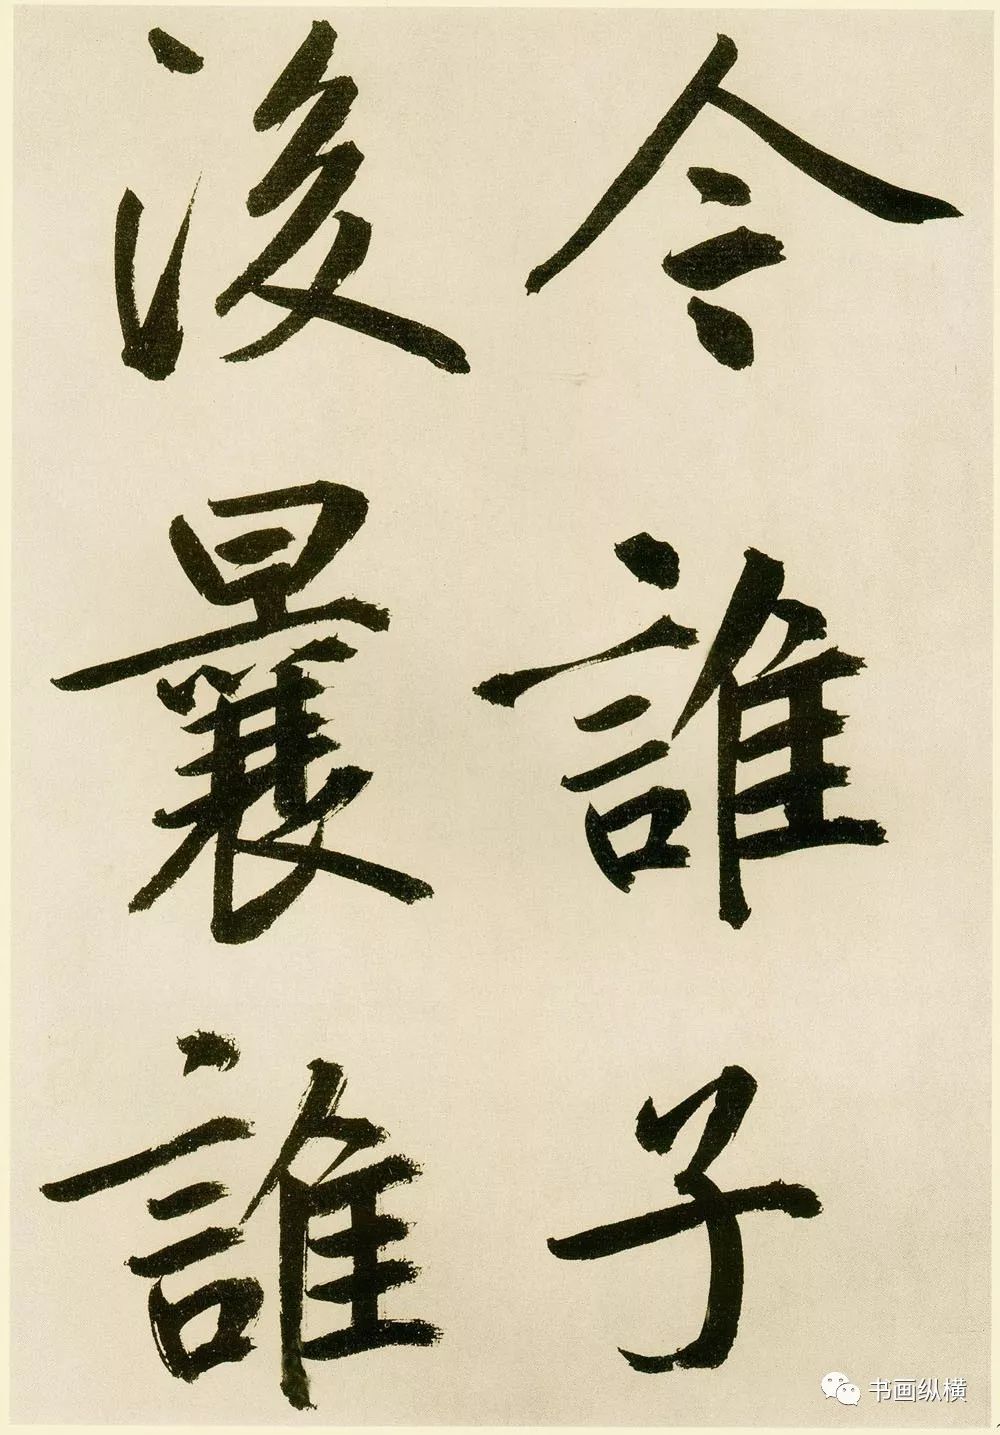 今誰子
後曩誰
书画纵横